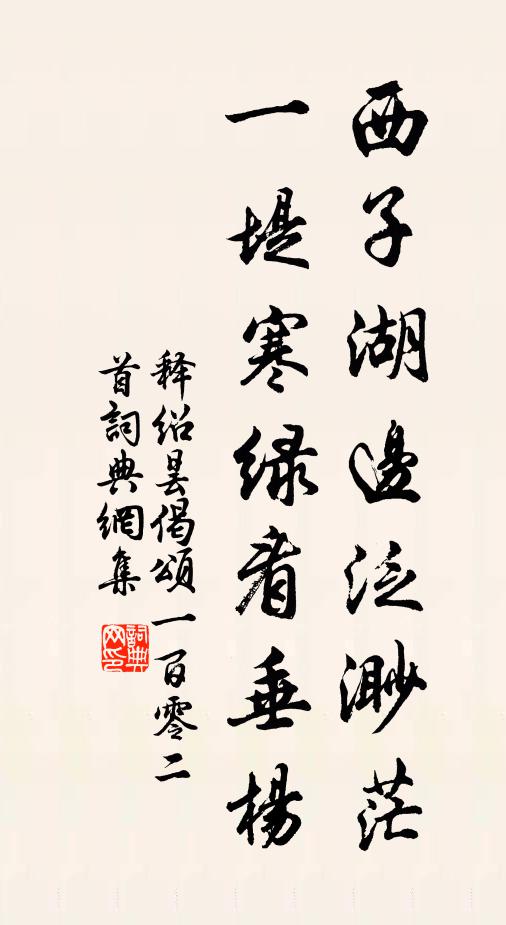 西子湖邊泛渺茫
一堤寒緑看垂楊
释绍昙偈頌一百零二
首詞典網集
詞典
网印